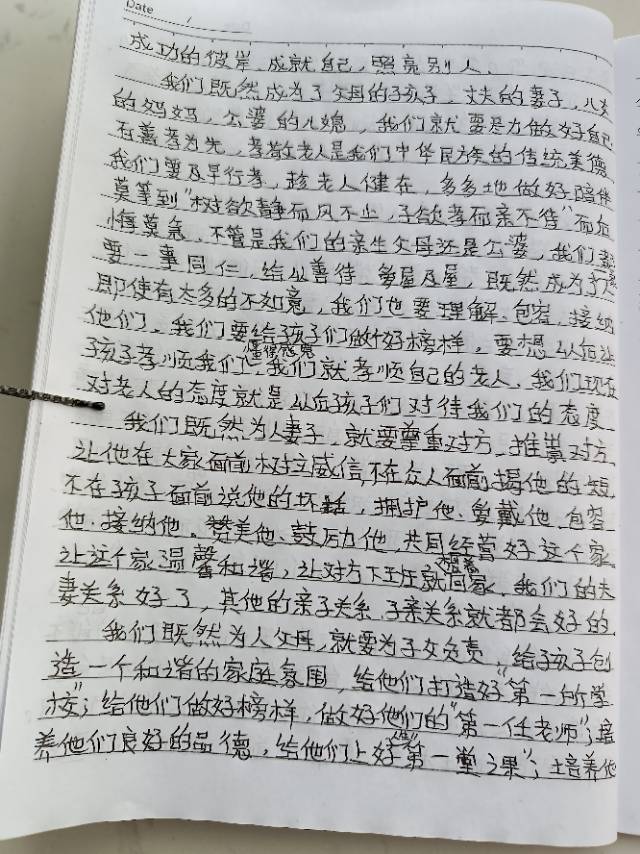 Date /
成功的彼岸,成就自己,照亮别人.
我们既然成为了父母的孩子,丈夫的妻子,儿女
的妈妈,公婆的儿媳,我们就要尽力做好自己.
百善孝为先,孝敬老人是我们中华民族的传统美德,
我们要及早行孝,趁老人健在,多多地做好陪伴
莫等到“树欲静而风不止,子欲孝而亲不待”而后
悔莫急,不管是我们的亲生父母还是公婆,我们都
要一事同仁,给以善待,爱屋及屋,既然成为了
即使有太多的不如意,我们也要理解、包容、接纳
他们。我们要给孩子们做好榜样,要想以后让
孩子孝顺我们懂得感恩,我们就孝顺自己的老人,我们现在
对老人的态度就是以后孩子们对待我们的态度
我们既然为人妻子,就要尊重对方,推崇对方,
让他在大家面前树立威信,不在众人面前揭他的短,
不在孩子面前说他的坏话,拥护他、爱戴他、包容
他、接纳他、赞美他、鼓励他,共同经营好这个家
让这个家温馨和谐,让对方下班就想着回家,我们的夫
妻关系好了,其他的亲子关系、子亲关系就都会好的.
我们既然为人父母,就要为子女负责,给孩子创
造一个和谐的家庭氛围,给他们打造好“第一所学
校”;给他们做好榜样,做好他们的“第一任老师”;培
养他们良好的品德,给他们上好“第一堂课”;培养他